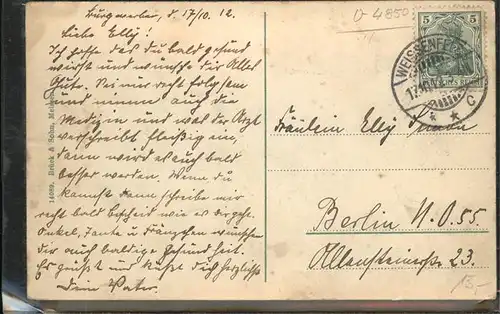 Burgwerben, d. 17/10. 12.
Liebe Elly!
Ich hoffe das du bald gesund
wirst und wünsche dir Alles
Gute. Sei nur recht folgsam
und nimm auch die
Medizin und was der Arzt
verschreibt fleißig ein,
dann wird es auch bald
besser werden. Wenn du
kannst dann schreibe mir
recht bald bescheit wie es dir geht.
Onkel, Tante u. Fränzchen wünschen
dir auch baldige Gesundheit.
Es grüßt und küßt dich herzlichst
Dein Vater.
14089. Brück & Sohn, Meißen
U-4850
5 5
WEISSENFELS
17.10.
C
Fräulein Elly
Berlin N.O. 55
Allensteinerstr. 23.
15.-